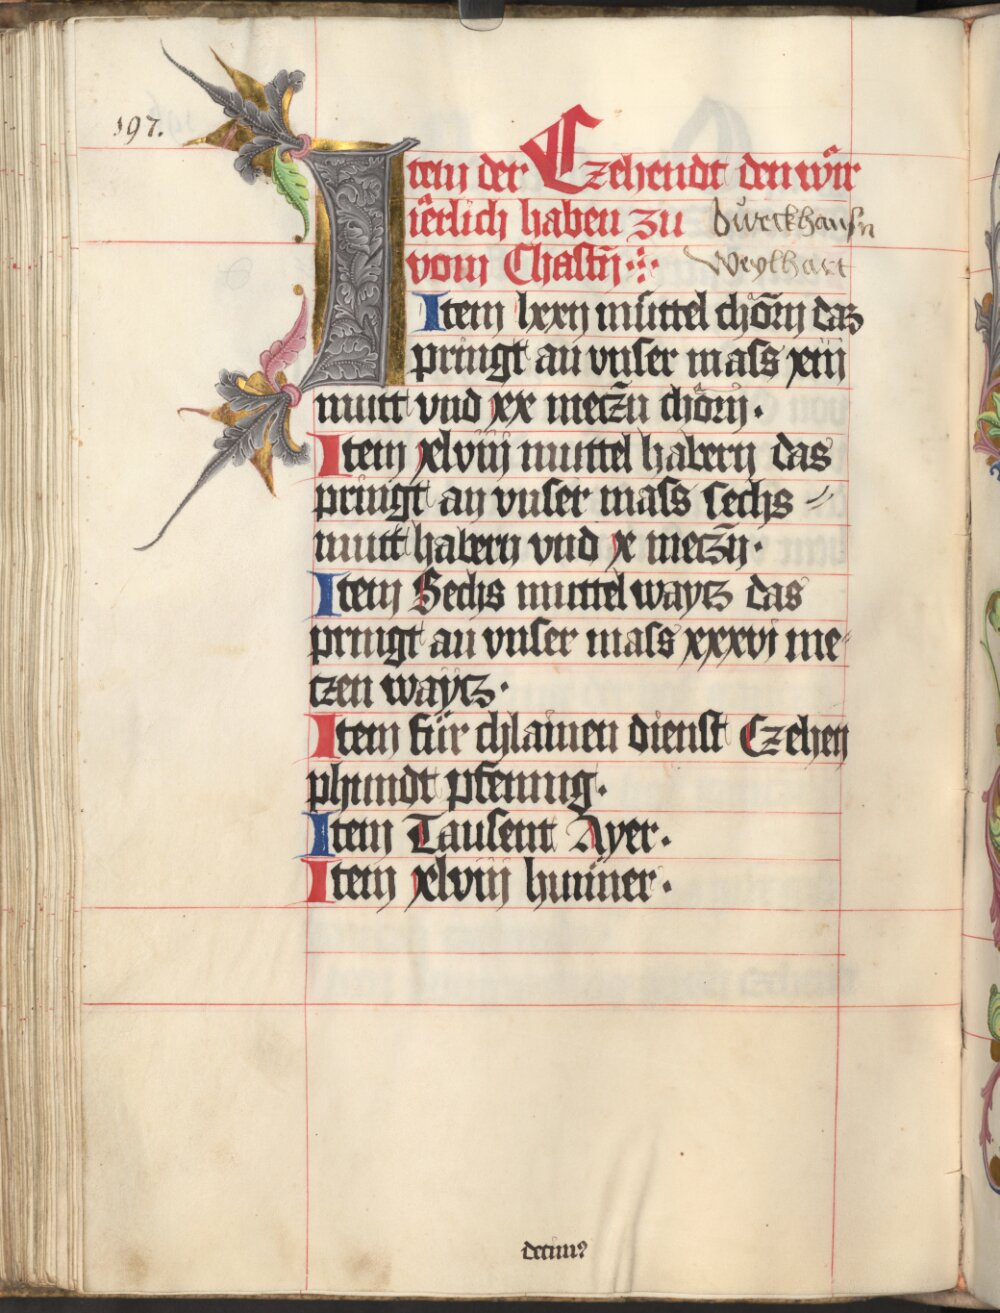 197.
Item der Czehendt den wir
iërlich haben zu Burckhausn
vom Chastñ Weylhart
Item lxxij muttel chörñ das
pringt an vnser mass xiij
mutt vnd xx meczñ chörñ.
Item xlviij muttel habern das
pringt an vnser mass sechs
mutt habern vnd x meczñ.
Item Sechs muttel waytz das
pringt an vnser mass xxxvi me
czen waytz.
Item für chlainen dienst Czehen
phundt pfenning.
Item Tausent Ayer.
Item xlviij hunner.
decim9